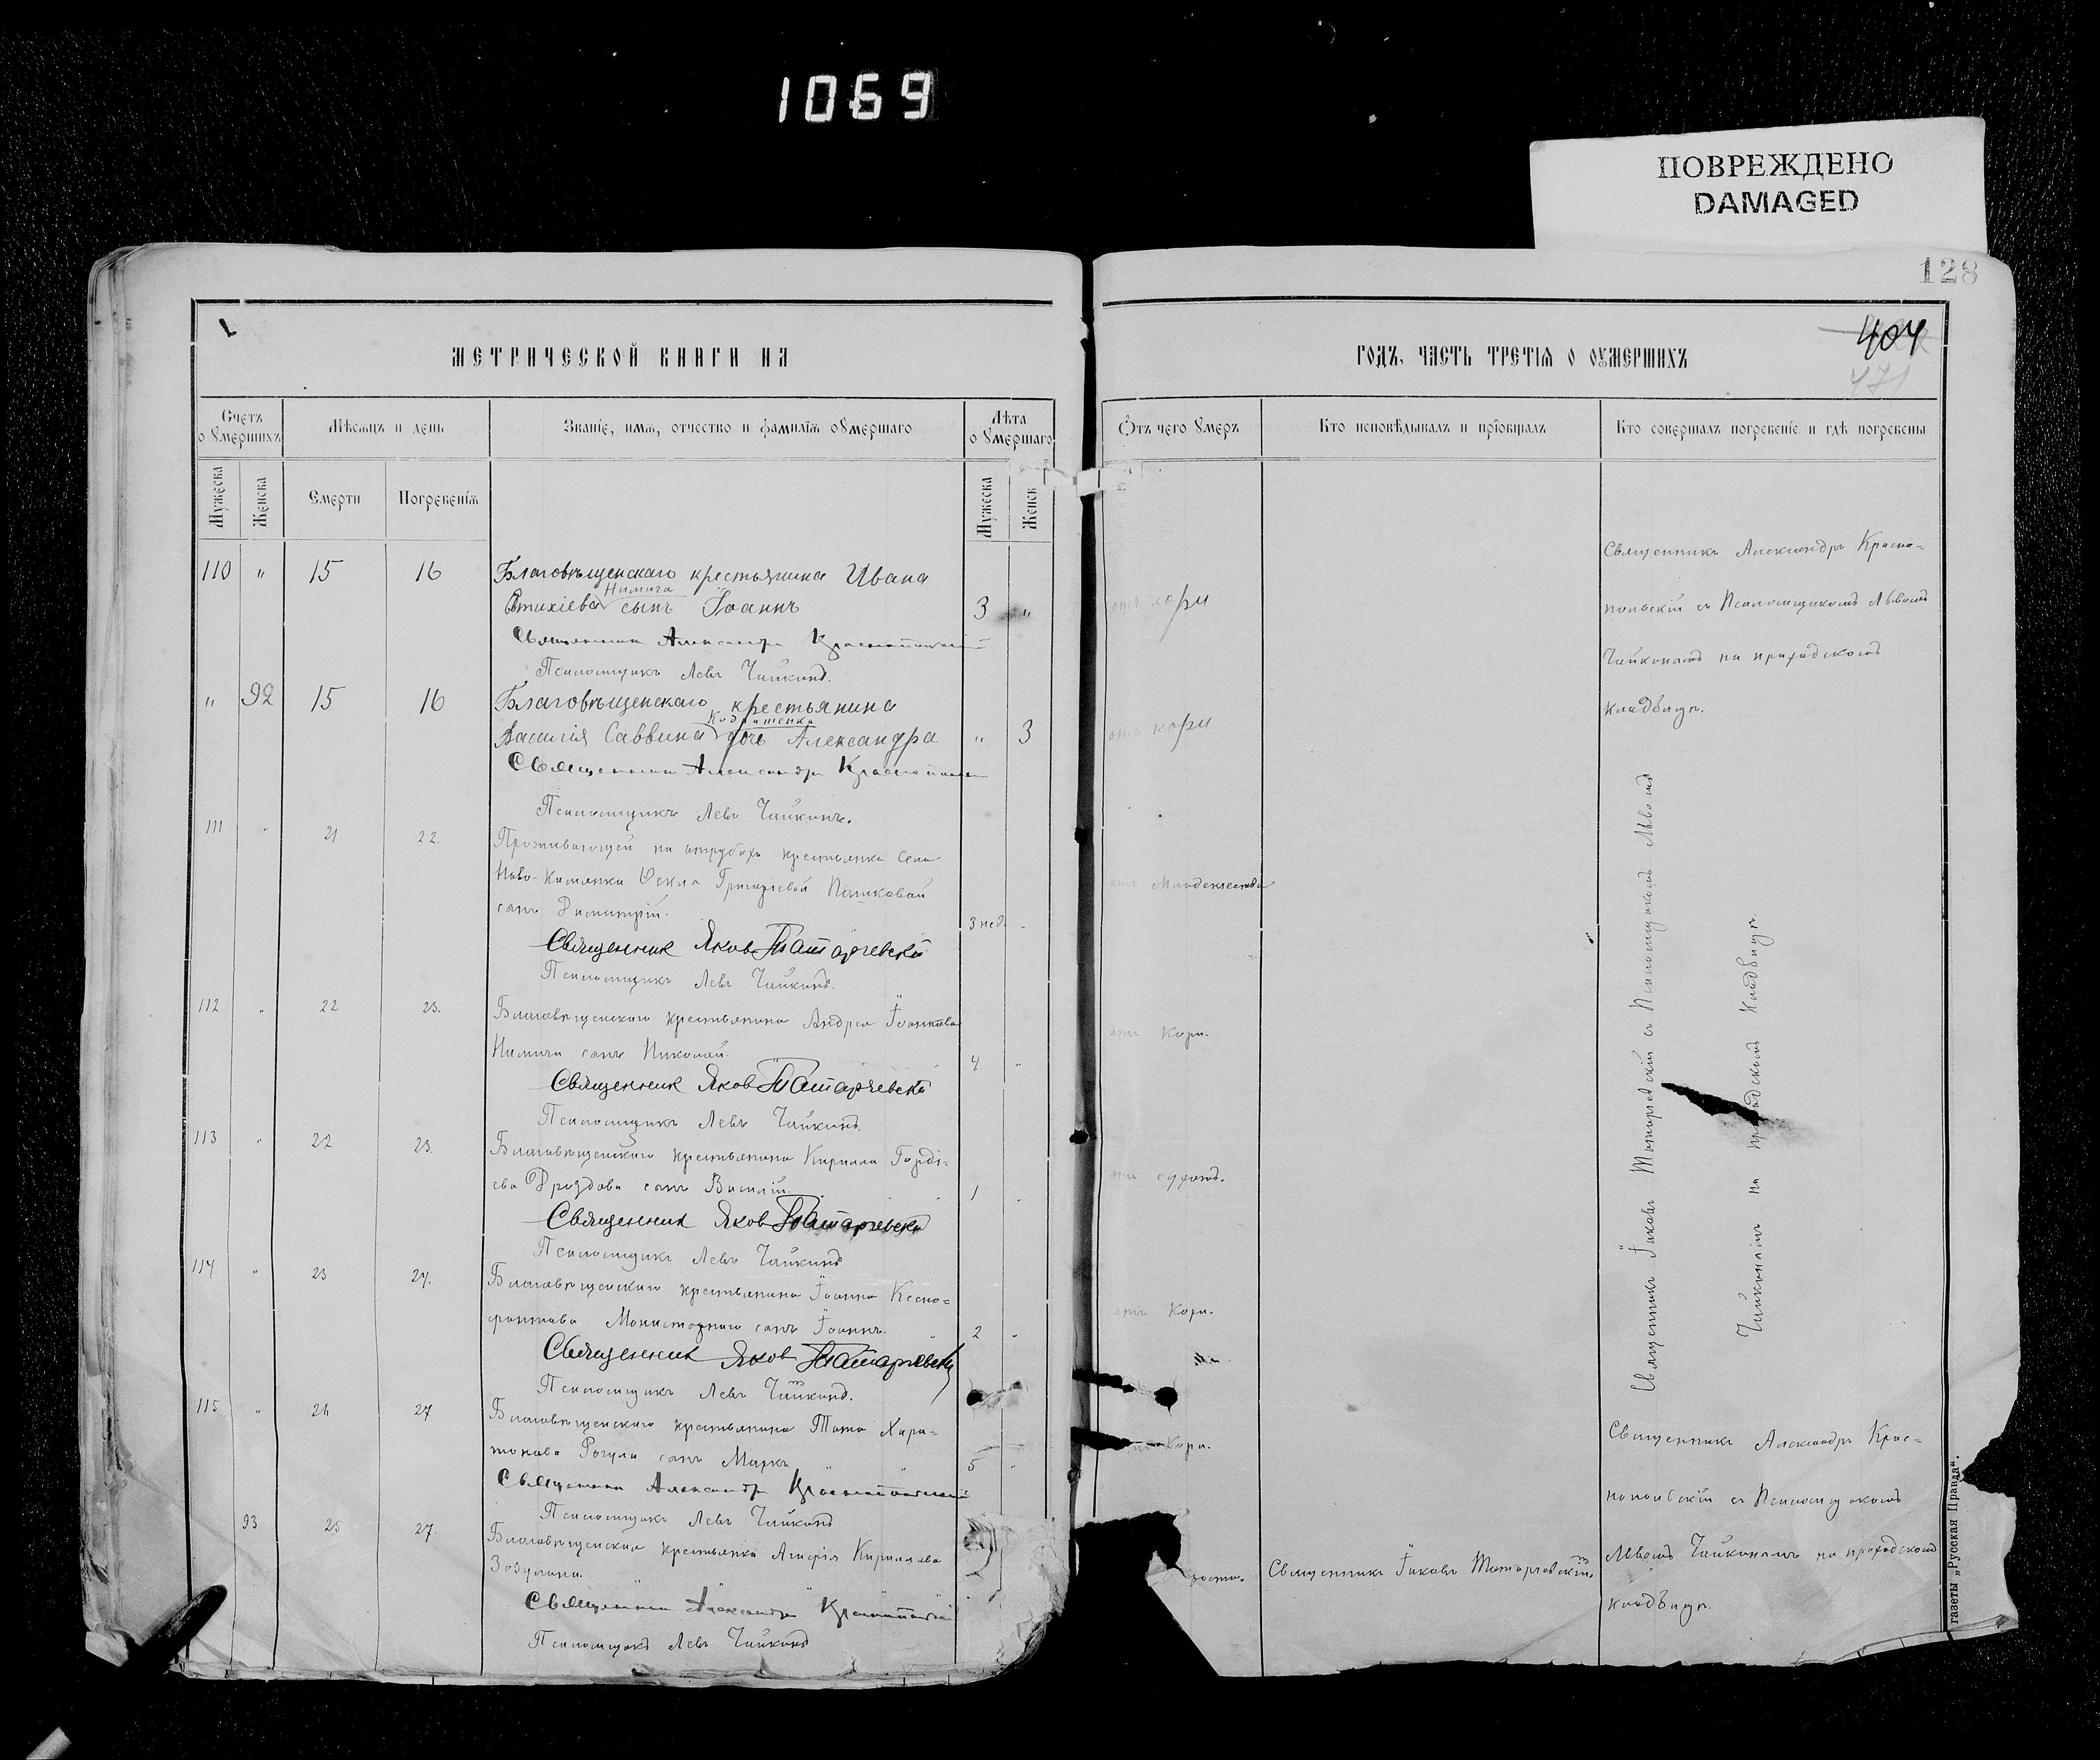 1069
ПОВРЕЖДЕНО
DAMAGED
128
МЕТРИЧЕСКОЙ КНИГИ НА
Счетъ о умершихъ
Мѣсяцъ и день
Званіе, имя, отчество и фамилія умершаго
Лѣта о умершаго
Мужеска
Женска
Смерти
Погребенія
Мужеска
Женск
110 " 15 16 Благовѣщенскаго крестьянина Ивана
Нимича
сынъ Іоаннъ 3 "
Священник Александр Краснопольскій
Псаломщикъ Левъ Чайкинъ.
" 92 15 16 Благовѣщенскаго крестьянина
Василія Саввина дочь Александра " 3
Священник Александр
Псаломщикъ Левъ Чайкинъ.
111 " 21 22. Проживающей на отрубахъ крестьянки села
Ново-Каменка Григоріевой
сынъ Димитрій. 3 нед.
Священник Яков Татарчевскій
Псаломщикъ Левъ Чайкинъ.
112 " 22 23. Благовѣщенскаго крестьянина Андрея
Нимичи сынъ Николай. 4 "
Священник Яков Татарчевскій
Псаломщикъ Левъ Чайкинъ.
113 " 22 23. Благовѣщенскаго крестьянина Кирилла Горді=
ева Дроздова сынъ Василій. 1 "
Священник Яков Татарчевскій
Псаломщикъ Левъ Чайкинъ
114 " 23 24. Благовѣщенскаго крестьянина Іоанна Ксено=
фонтова сынъ Іоаннъ. 2 "
Священник Яков Татарчевскій
Псаломщикъ Левъ Чайкинъ.
115 " 26 27 Благовѣщенскаго крестьянина Тита Хари=
тонова Рогули сынъ Маркъ 5 "
Священник Александр Краснопольскій
Псаломщикъ Левъ Чайкинъ
93 25 27. Благовѣщенская крестьянка Агафія Кириллова
Священник Александр
Псаломщикъ Левъ Чайкинъ
ГОДЪ, ЧАСТЬ ТРЕТІЯ О ОУМЕРШИХЪ
404
471
Отъ чего умеръ
Кто исповѣдывалъ и пріобщалъ
Кто совершалъ погребеніе и гдѣ погребены
Священникъ Александръ Красно=
отъ кори
польскій съ Псаломщикомъ Львомъ
Чайкинымъ на приходскомъ
кладбищѣ.
отъ кори
отъ младенчества
отъ Кори.
отъ сухотъ.
отъ Кори.
Кори.
Священникъ Іаковъ Татарчевскій съ Псаломщикомъ Львомъ
Чайкинымъ на приходскомъ кладбищѣ.
Священникъ Александръ Крас=
нопольскій съ Псаломщикомъ
Священникъ Іаковъ Татарчевскій.
Львомъ Чайкинымъ на приходскомъ
кладбищѣ.
газеты „Русская Правда“.